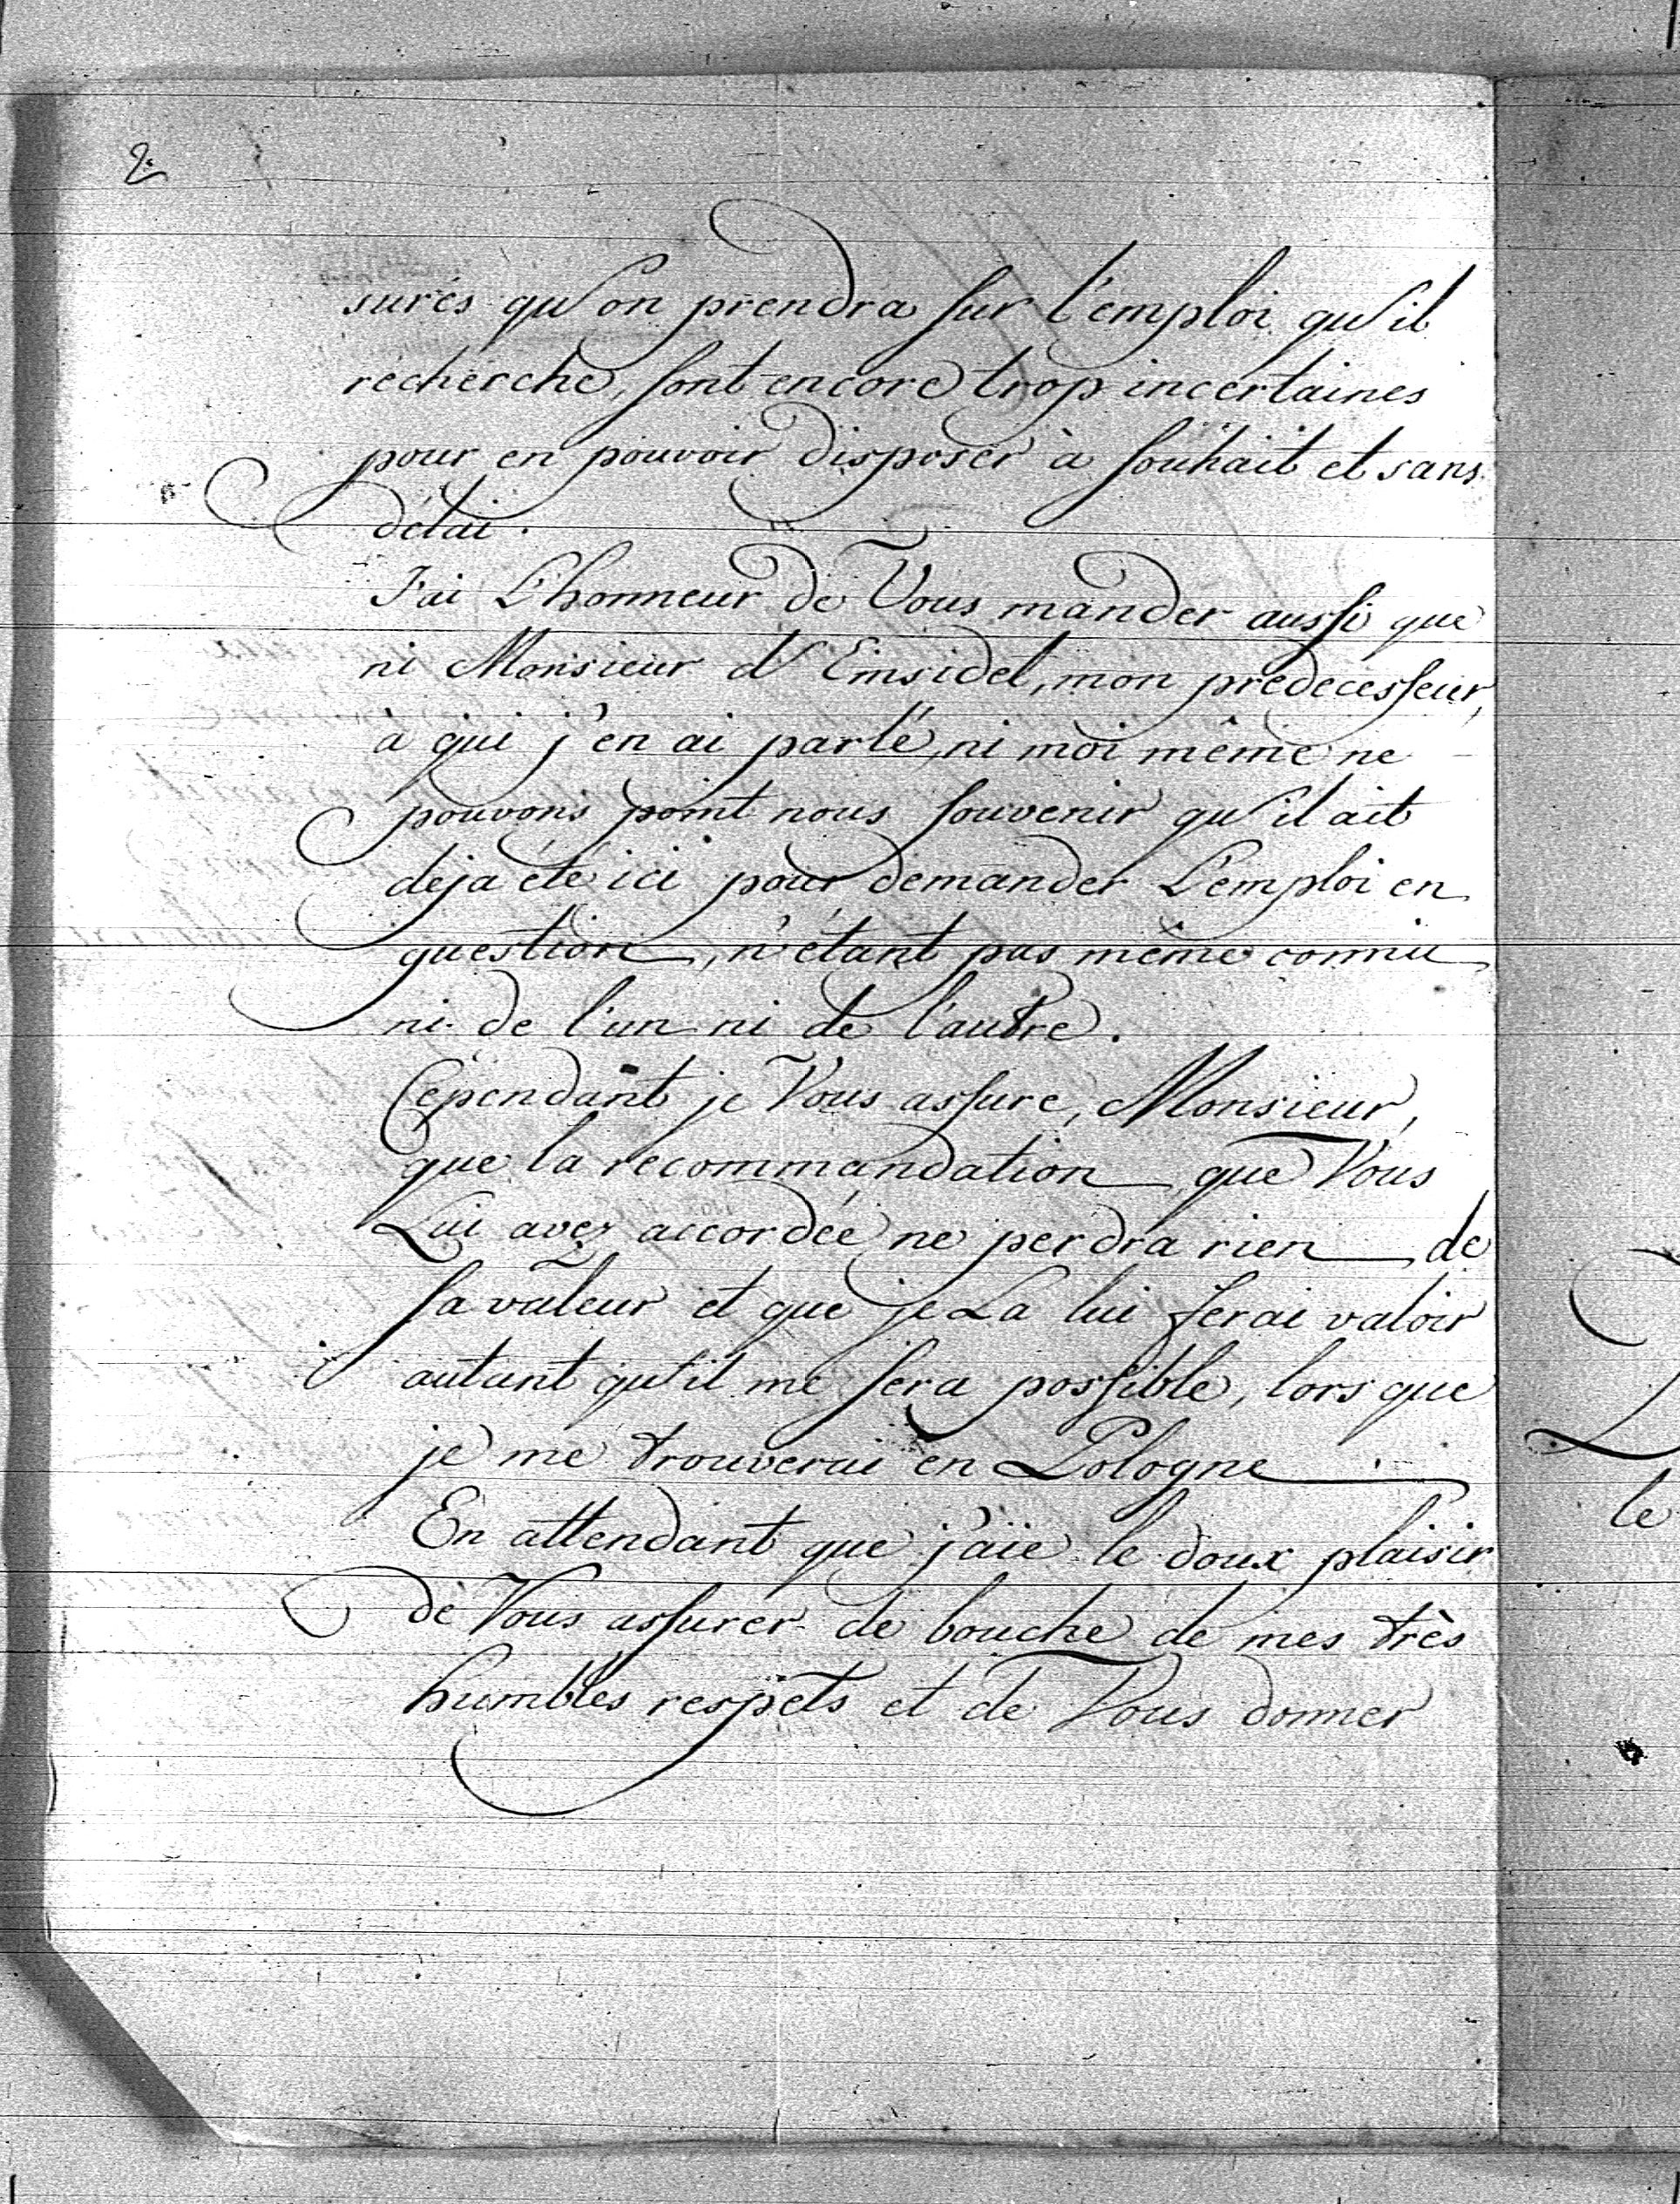 2.
surés qu'on prendra sur l'emploi qu'il
récherche, sont encore trop incertaines
pour en pouvoir disposer à souhait et sans
délai.
J'ai L'honneur de Vous mander aussi que
ni Monsieur d'Einsidel, mon predecesseur,
à qui j'en ai parlé, ni moi même ne
pouvons point nous souvenir qu'il ait
deja été ici pour demander L'emploi en
question, n'étant pas même connu
ni de l'un ni de l'autre.
Cépendant je Vous assure, Monsieur,
que la recommandation que Vous
Lui avez accordée ne perdra rien de
sa valeur et que je La lui ferai valoir
autant qu'il me sera possible, lors que
je me trouverai en Pologne.
En attendant que j'aïe le doux plaisir
de Vous assurer de bouche de mes très
humbles respets et de Vous donner
le